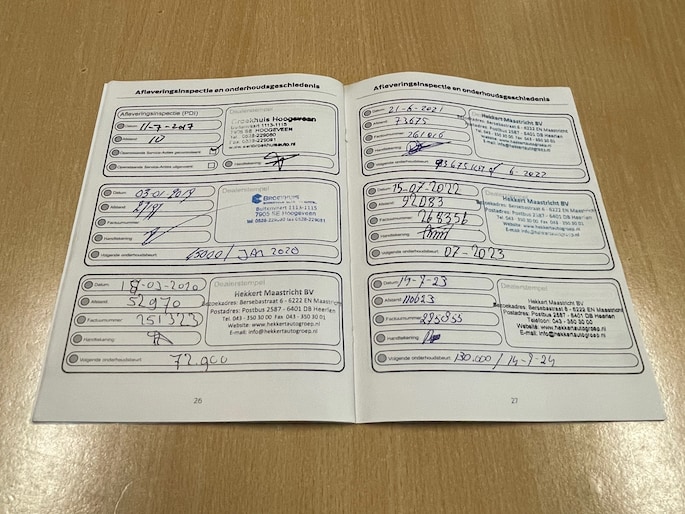 Afleveringsinspectie en onderhoudsgeschiedenis
Afleveringsinspectie (PDI)
Datum 11-7-2017
Afstand 10
Openstaande Service-Acties gecontroleerd
Openstaande Service-Acties uitgevoerd
Dealerstempel
Broekhuis Hoogeveen
Buitenvaart 1113-1115
7905 SE HOOGEVEEN
Tel. 0528-229080
Fax 0528-229081
Handtekening
Datum 03-01-2019
Afstand
Factuurnummer
Handtekening
Dealerstempel
BROEKHUIS
Buitenvaart 1113-1115
7905 SE Hoogeveen
Volgende onderhoudsbeurt / JAN 2020
Datum 18-03-2020
Afstand 52970
Factuurnummer 251323
Handtekening
Dealerstempel
Hekkert Maastricht BV
Bezoekadres: Bersebastraat 6 - 6222 EN Maastricht
Postadres: Postbus 2587 - 6401 DB Heerlen
Tel. 043 - 350 30 00 Fax 043 - 350 30 01
Website: www.hekkertautogroep.nl
E-mail: info@hekkertautogroep.nl
Volgende onderhoudsbeurt 72.900
26
Afleveringsinspectie en onderhoudsgeschiedenis
Datum 21-6-2021
Afstand 73675
Factuurnummer 261016
Handtekening
Hekkert Maastricht BV
Bezoekadres: Bersebastraat 6 - 6222 EN Maastricht
Postadres: Postbus 2587 - 6401 DB Heerlen
Volgende onderhoudsbeurt 93675 km / 6-2022
Datum 15-07-2022
Afstand 92083
Factuurnummer 268356
Handtekening
Hekkert Maastricht BV
Bezoekadres: Bersebastraat 6 - 6222 EN Maastricht
Postadres: Postbus 2587 - 6401 DB Heerlen
E-mail: info@hekkertautogroep.nl
Volgende onderhoudsbeurt 07-2023
Datum 14-7-23
Afstand 110623
Factuurnummer 275855
Handtekening
Dealerstempel
Hekkert Maastricht BV
Bezoekadres: Bersebastraat 6 - 6222 EN Maastricht
Postadres: Postbus 2587 - 6401 DB Heerlen
Telefoon: 043 - 350 30 00
Website: www.hekkertautogroep.nl
E-mail: info@hekkertautogroep.nl
Volgende onderhoudsbeurt 130.000 / 14-7-24
27